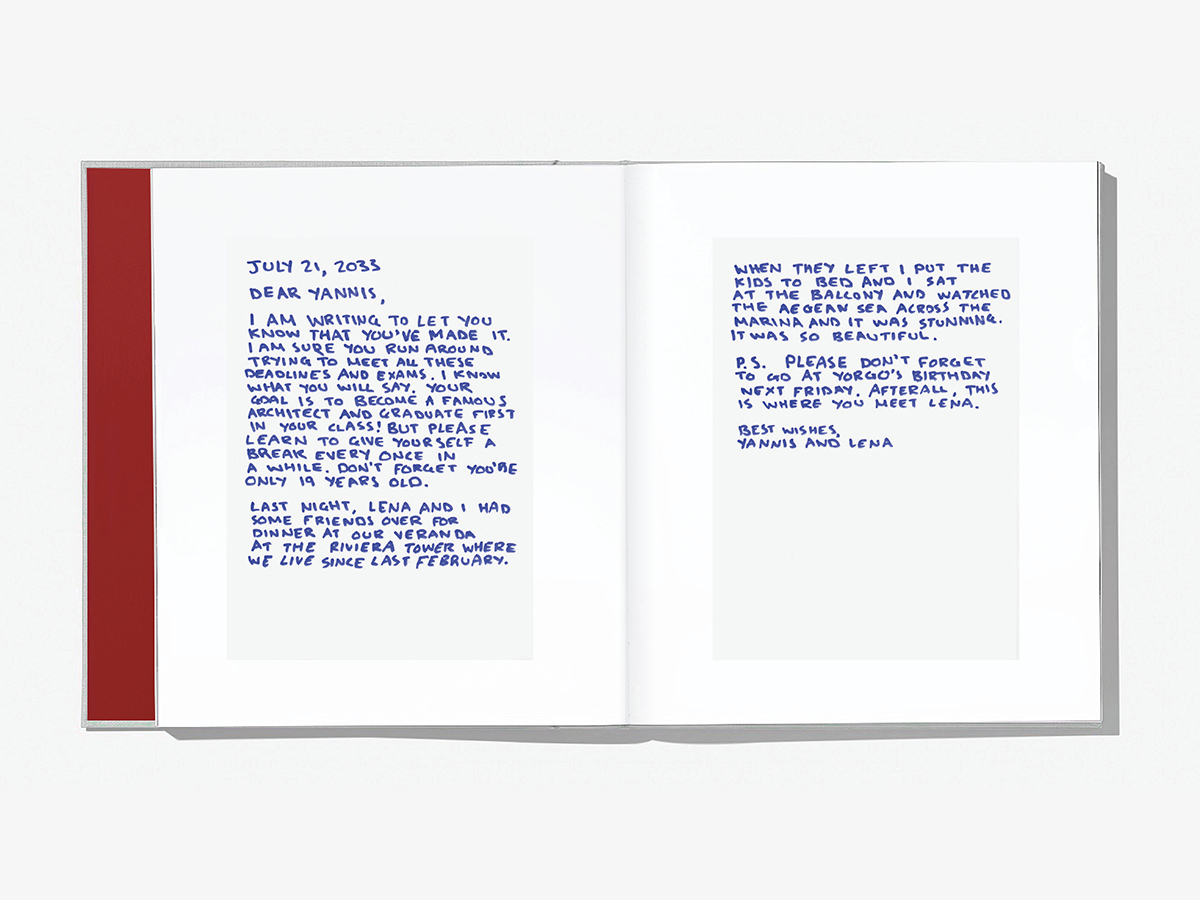 JULY 21, 2033
DEAR YANNIS,
I AM WRITING TO LET YOU
KNOW THAT YOU'VE MADE IT.
I AM SURE YOU RUN AROUND
TRYING TO MEET ALL THESE
DEADLINES AND EXAMS. I KNOW
WHAT YOU WILL SAY. YOUR
GOAL IS TO BECOME A FAMOUS
ARCHITECT AND GRADUATE FIRST
IN YOUR CLASS! BUT PLEASE
LEARN TO GIVE YOURSELF A
BREAK EVERY ONCE IN
A WHILE. DON'T FORGET YOU'RE
ONLY 19 YEARS OLD.
LAST NIGHT, LENA AND I HAD
SOME FRIENDS OVER FOR
DINNER AT OUR VERANDA
AT THE RIVIERA TOWER WHERE
WE LIVE SINCE LAST FEBRUARY.
WHEN THEY LEFT I PUT THE
KIDS TO BED AND I SAT
AT THE BALCONY AND WATCHED
THE AEGEAN SEA ACROSS THE
MARINA AND IT WAS STUNNING.
IT WAS SO BEAUTIFUL.
P.S. PLEASE DON'T FORGET
TO GO AT YORGO'S BIRTHDAY
NEXT FRIDAY. AFTERALL, THIS
IS WHERE YOU MEET LENA.
BEST WISHES,
YANNIS AND LENA